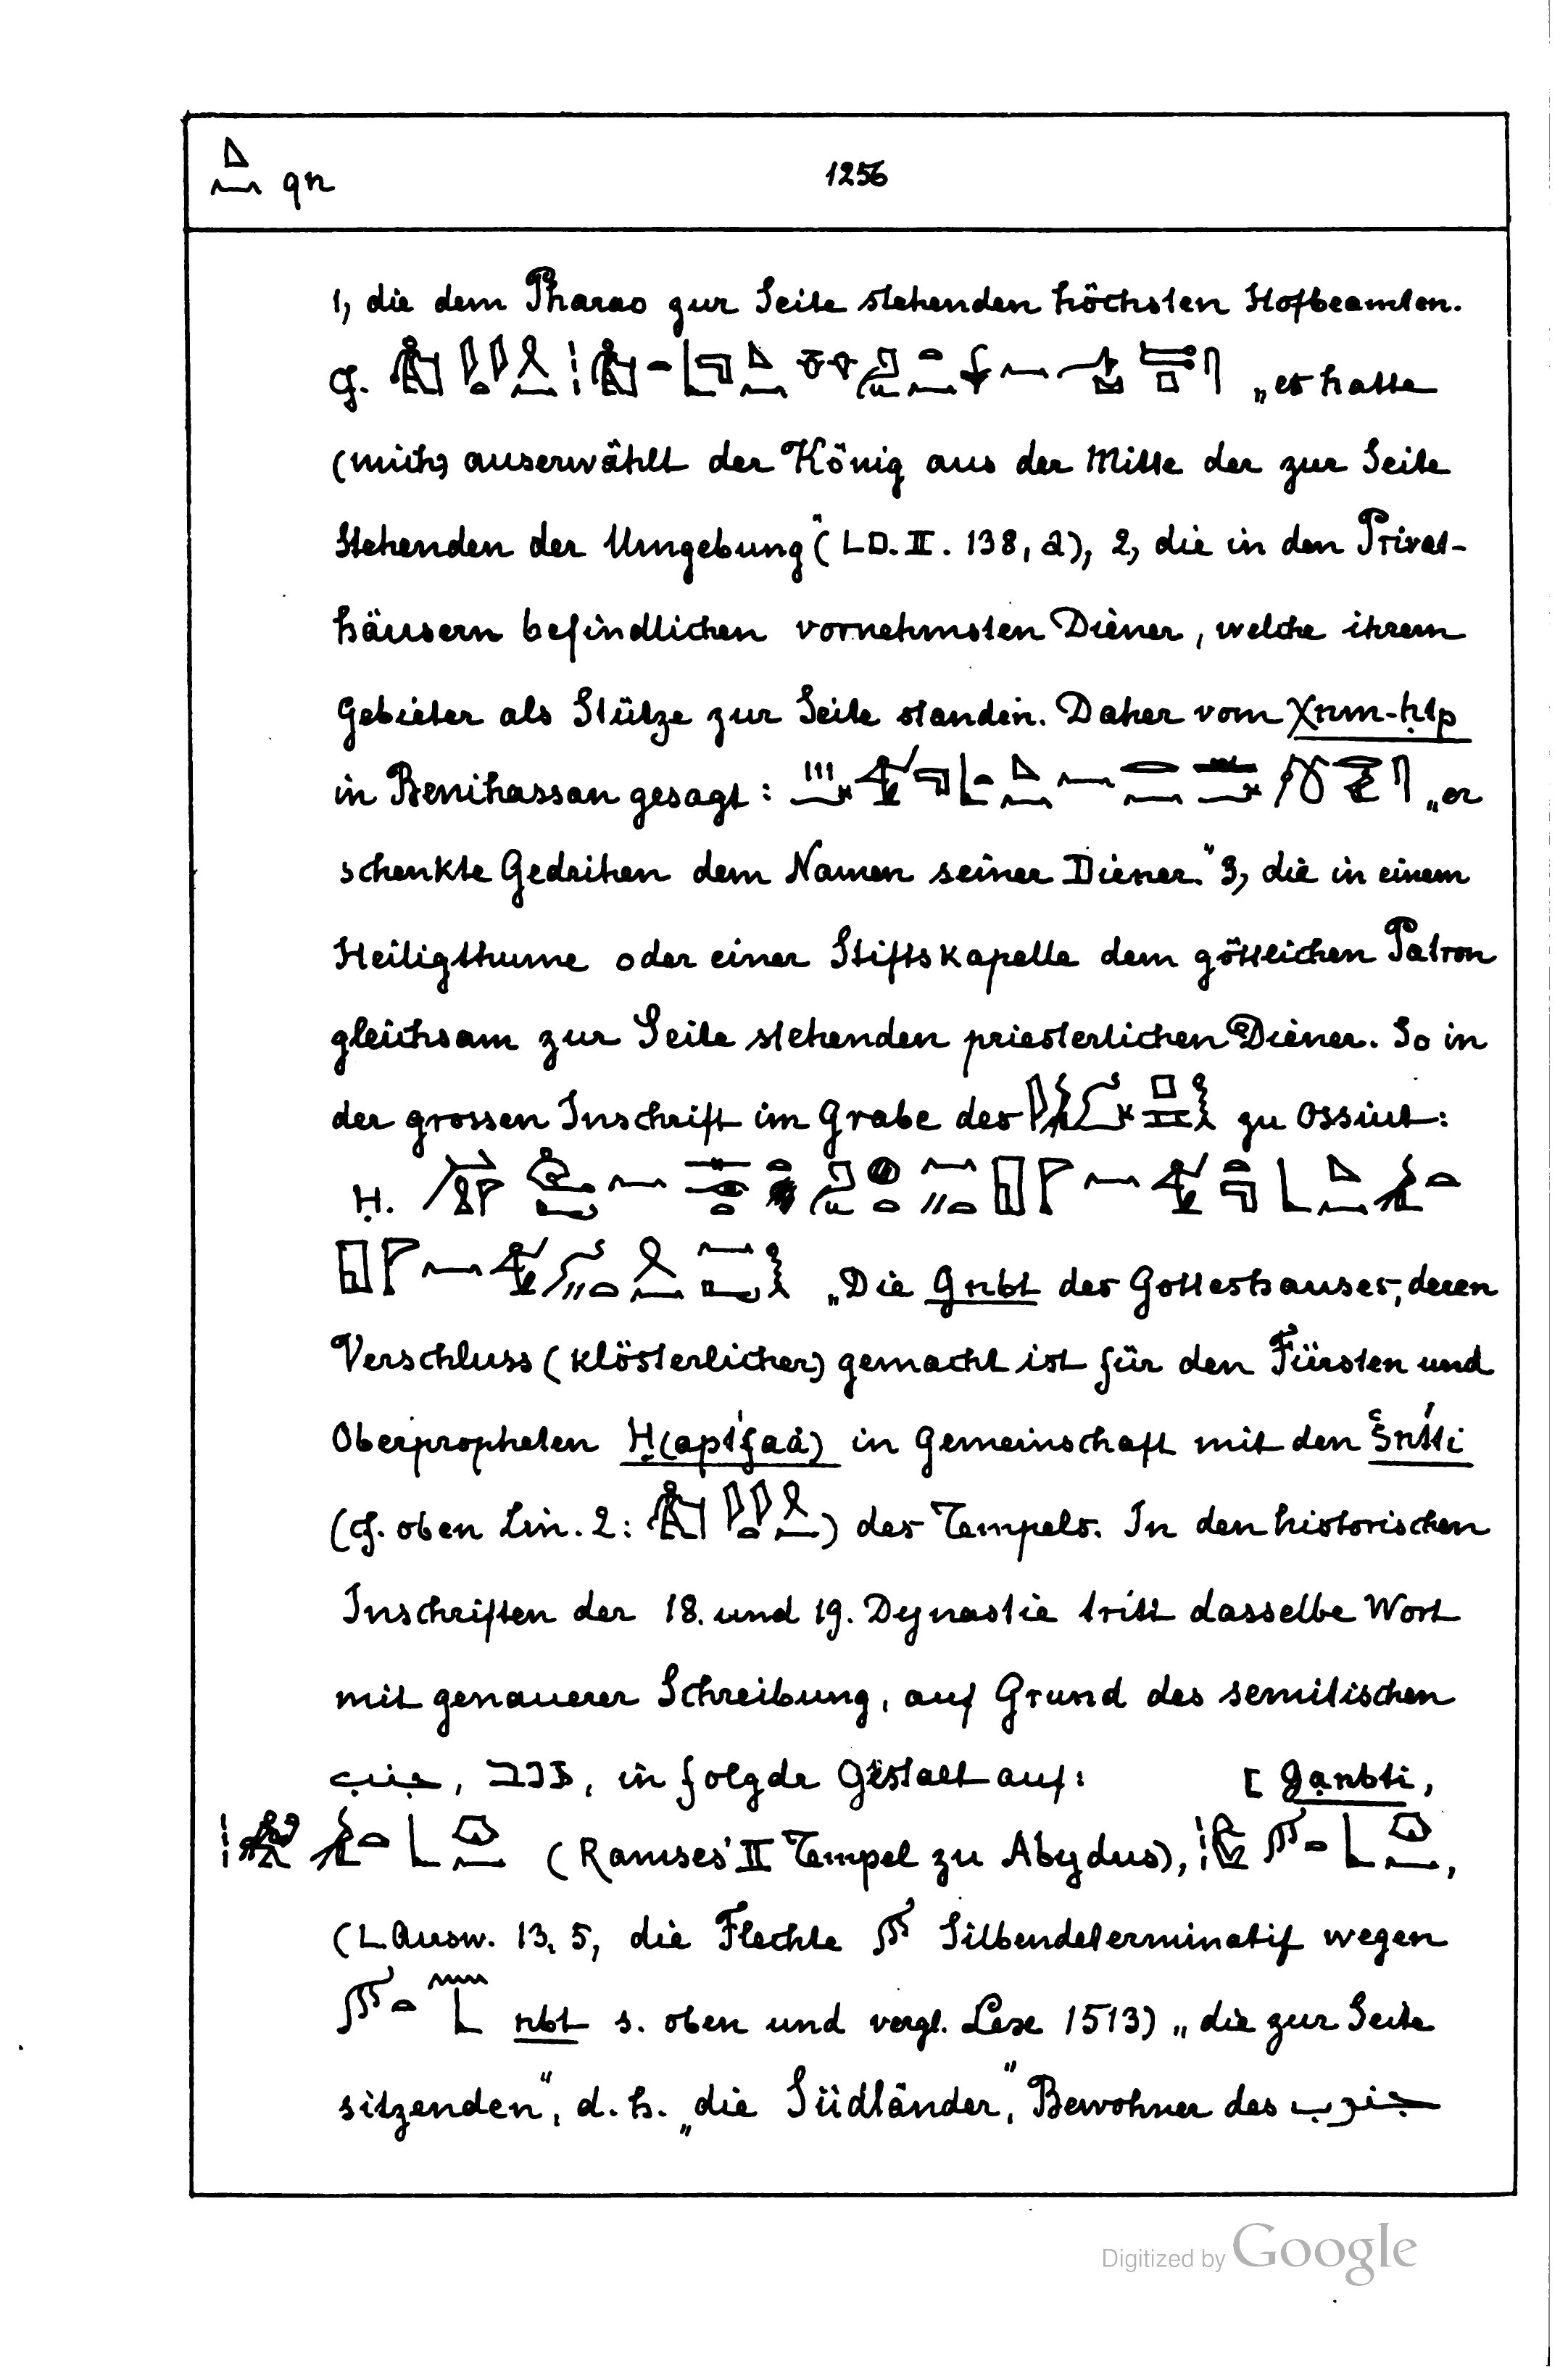 qn 1256
1, die dem Pharao zur Seite stehenden höchsten Hofbeamten.
cf. „er hatte
(mich) auserwählt der König aus der Mitte der zur Seite
stehenden der Umgebung“ (LD. II. 138, a), 2, die in den Privat-
häusern befindlichen vornehmsten Diener, welche ihrem
Gebieter als Stütze zur Seite standen. Daher vom Xnm-ḥtp
in Benihassan gesagt: „er
schenkte Gedeihen dem Namen seiner Diener.“ 3, die in einem
Heiligthume oder einer Stiftskapelle dem göttlichen Patron
gleichsam zur Seite stehenden priesterlichen Diener. So in
der grossen Inschrift im Grabe des zu Ossiut:
Ḥ.
„Die Qnbt des Gotteshauses, deren
Verschluss (klösterlicher) gemacht ist für den Fürsten und
Oberpropheten Ḥ(apt'faá) in Gemeinschaft mit den
(cf. oben Lin. 2: ) des Tempels. In den historischen
Inschriften der 18. und 19. Dynastie tritt dasselbe Wort
mit genauerer Schreibung, auf Grund des semitischen
جنب, גנב, in folgdr Gestalt auf: [ Qanbti,
(Ramses' II Tempel zu Abydus),
(L. Ausw. 13, 5, die Flechte Silbendeterminatif wegen
nbt s. oben und vergl. Lexe 1513) „die zur Seite
sitzenden“, d. h. „die Südländer,“ Bewohner des جنوب
Digitized by Google